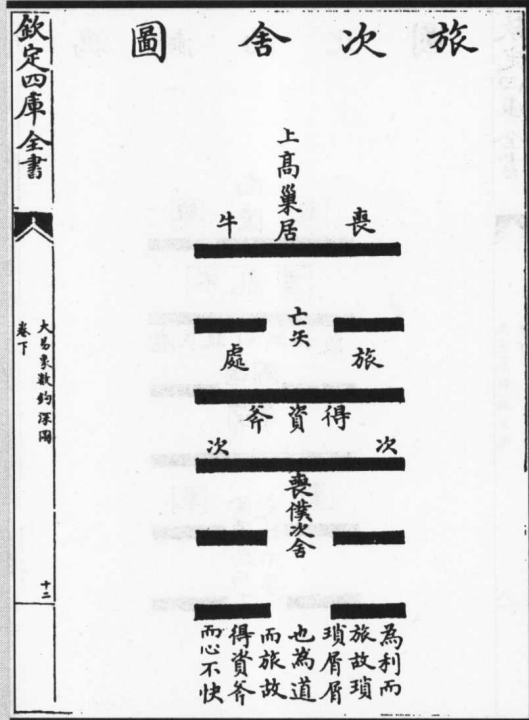 旅次舍圖
上高巢居
喪牛
亡矢
旅處
得資斧
次次
喪僕次舍
為利而
旅故瑣
瑣屑屑
也為道
而旅故
得資斧
而心不快
欽定四庫全書
大易象數鉤深圖
卷下
十二